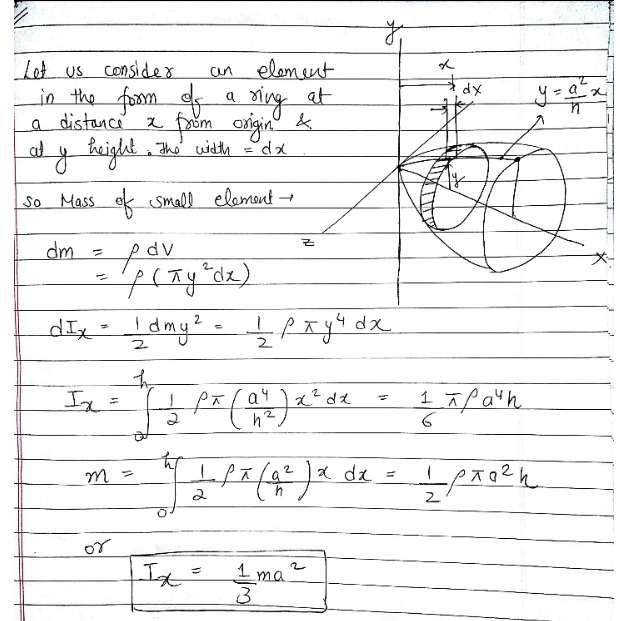 Let us consider an element
in the form of a ring at
a distance x from origin &
at y height. The width = dx.
so Mass of small element →
dm = ρ dV
= ρ(πy²dx)
dIx = 1/2 dmy² = 1/2 ρπy⁴ dx
Ix = ∫₀ʰ 1/2 ρπ(a⁴/h²)x² dx = 1/6 πρa⁴h
m = ∫₀ʰ 1/2 ρπ(a²/h)x dx = 1/2 ρπa²h
or
Ix = 1/3 ma²
y
x
dx
y = a²/h x
y
z
x